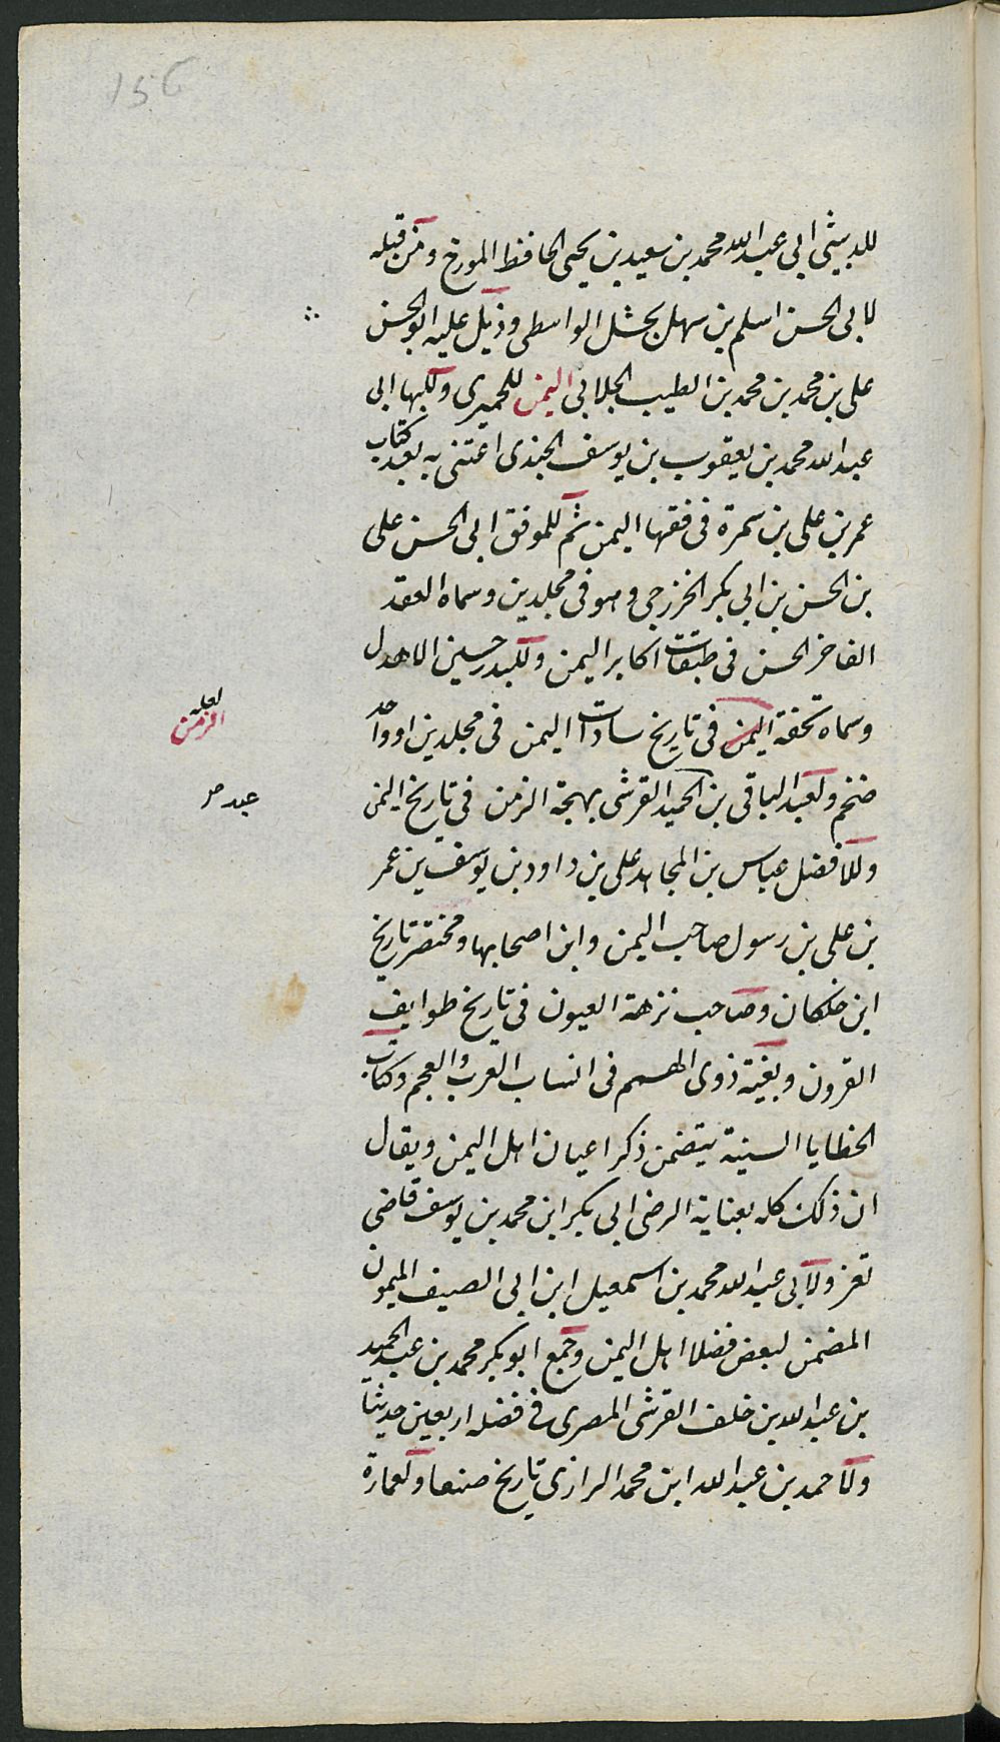 156
للدبيثي ابي عبد الله محمد بن سعيد بن يحيى الحافظ المورخ ومن قبله
لابي الحسن اسلم بن سهل بحشل الواسطي وذيل عليه ابو الحسن
علي بن محمد بن محمد بن الطيب الجلابي اليمن للحميري ولبها ابي
عبد الله محمد بن يعقوب بن يوسف الجندي اعتنى به بعد كتاب
عمر بن علي بن سمرة في فقها اليمن ثم للموفق ابي الحسن علي
بن الحسن بن ابي بكر الخزرجي وهو في مجلدين وسماه العقد
الفاخر الحسن في طبقات اكابر اليمن وللبدر حسين الاهدل
وسماه تحفة اليمن في تاريخ سادات اليمن في مجلدين او واحد
لعله
الزمن
ضخم ولعبد الباقي بن الحميد القرشي بهجة الزمن في تاريخ اليمن
عبد صر
وللافضل عباس بن المجاهد علي بن داود بن يوسف بن عمر
بن علي بن رسول صاحب اليمن وابن اصحابها ومختصر تاريخ
ابن خلكان وصاحب نزهة العيون في تاريخ طوايف
القرون وبغية ذوي الهمم في انساب العرب والعجم وكتاب
الخطايا السنية يتضمن ذكر اعيان اهل اليمن ويقال
ان ذلك كله بعناية الرضى ابي بكر ابن محمد بن يوسف قاضي
تعز ولابي عبد الله محمد بن اسمعيل ابن ابي الصيف الميمون
المضمن لبعض فضلا اهل اليمن وجمع ابو بكر محمد بن عبد الحميد
بن عبد الله بن خلف القرشي المصري في فضله اربعين حديثا
ولاحمد بن عبد الله ابن محمد الرازي تاريخ صنعا ولعمارة